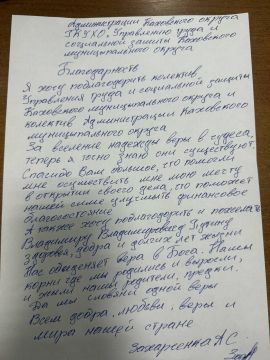 Администрации Каховского округа
ГКУХО, Управлению труда и
социальной защиты Каховского
муниципального округа
Благодарность
Я хочу поблагодарить колектив
Управления труда и социальной защиты
Каховского муниципального округа и
колектив Администрации Каховского
муниципального округа
За вселение надежды веры в чудеса,
теперь я точно знаю они существуют.
Спасибо Вам большое, что помогли
мне осуществить мне мою мечту
в открытии своего дела, что поможет
нашей семье улучшить финансовое
благосостояние
А также хочу поблагодарить и пожелать
Владимиру Владимировичу Путину
здоровья, добра и долгих лет жизни
Нас объеденяет вера в Бога. Наши
корни где мы родились и выросли,
и жили наши родители, предки.
Да мы словяни одной веры
Всем добра, любови, веры и
мира нашей стране
Захарсенко А.С.